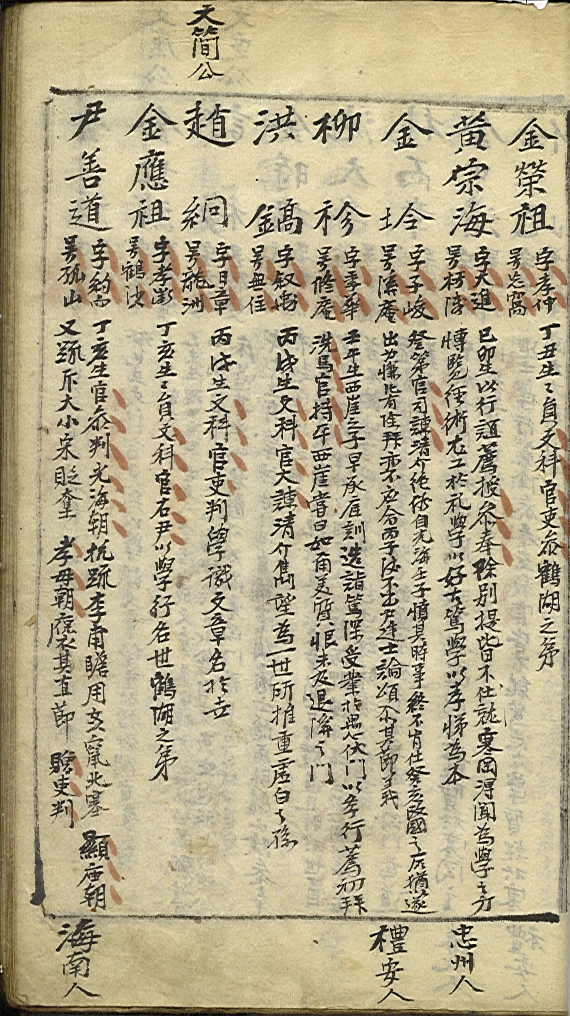 金榮祖 字孝仲 號忘窩 丁丑生生員文科官吏參鶴湖之弟
黃宗海 字大進 號朽淺 己卯生以行誼薦授參奉除別提皆不仕就寒岡得聞為學之方
博覽經術尤工於礼學以好古篤學以孝悌為本 忠州人
金坽 字子峻 號溪巖 登第官司諫清介絶俗自光海壬子憤其時事終不肯仕癸亥改國之后猶遂
出力懶比有除拜忠不應命丙子後不出世士論頌其節義 禮安人
柳袗 字季華 號修巖 壬午生西崖之子早承庭訓造詣篤深受業於愚伏門以孝行薦初拜
洗馬官持平西崖嘗曰如甭美質恨未及退陶之門
洪鎬 字叔京 號無住 丙戌生文科官大諫清介雋望為一世所推重虛白之孫
趙絅 字日章 號龍洲 丙戌生文科官吏判學識文章名於世
金應祖 字孝徵 號鶴沙 丁亥生生員文科官右尹以學行名世鶴湖之弟
文簡公
尹善道 字約而 號孤山 丁亥生官參判光海朝抗疏李甭瞻用文竄北塞 顯庙朝
又疏斥大小宋貶奎 孝毋朝 其直節 贈吏判 海南人